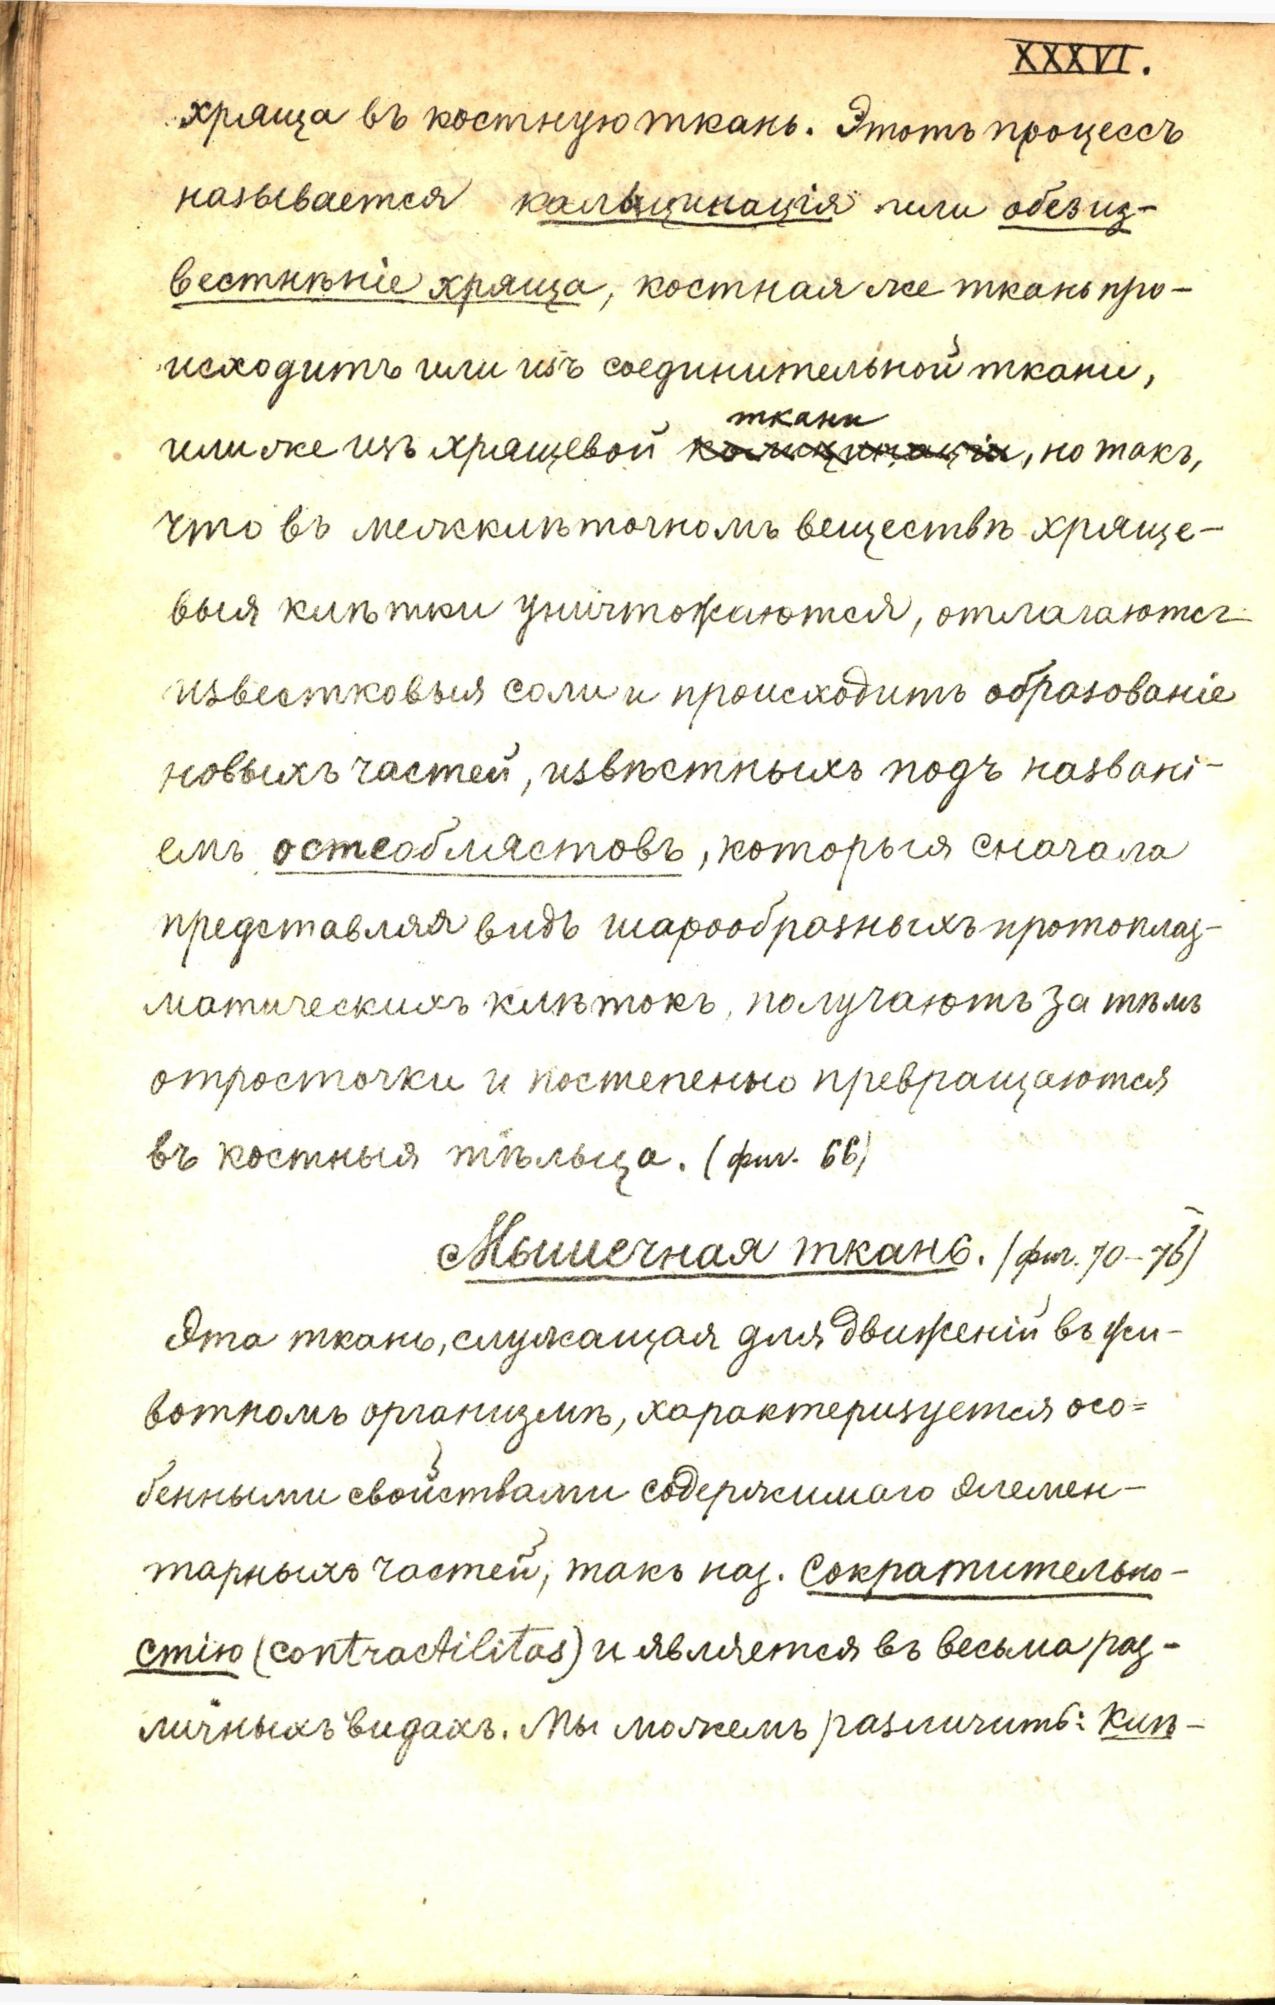 XXXVI.
хряща въ костную ткань. Этотъ процессъ
называется кальцинація или обезиз-
вестнѣніе хряща, костная же ткань про-
исходитъ или изъ соединительной ткани,
ткани
или же изъ хрящевой кальцинаціи, но такъ,
что въ межклѣточномъ веществѣ хряще-
выя клѣтки уничтожаются, отлагаются
известковыя соли и происходитъ образованіе
новыхъ частей, извѣстныхъ подъ названі-
емъ остеобластовъ, которыя сначала
представляя видъ шарообразныхъ протоплаз-
матическихъ клѣтокъ, получаютъ за тѣмъ
отросточки и постепенно превращаются
въ костныя тѣльца. (фиг. 66)
Мышечная ткань. (фиг. 70-76)
Эта ткань, служащая для движеній въ жи-
вотномъ организмѣ, характеризуется осо=
бенными свойствами содержимаго элемен-
тарныхъ частей, такъ наз. сократительно-
стію (contractilitas) и является въ весьма раз-
личныхъ видахъ. Мы можемъ различить: клѣ-